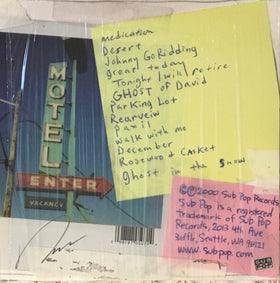 medication
Desert
Johnny GoRidding
great today
Tonight I will retire
GHOST of David
parking Lot
Rearveiw
paxil
walk with me
December
Rosewood Casket
ghost in the snow
MOTEL
ENTER
VACANCY
©℗2000 Sub Pop Records
Sub Pop is a registered
trademark of Sub Pop
Records, 2013 4th Ave
3rd fl, Seattle, WA 98121
www.subpop.com
SUB
POP